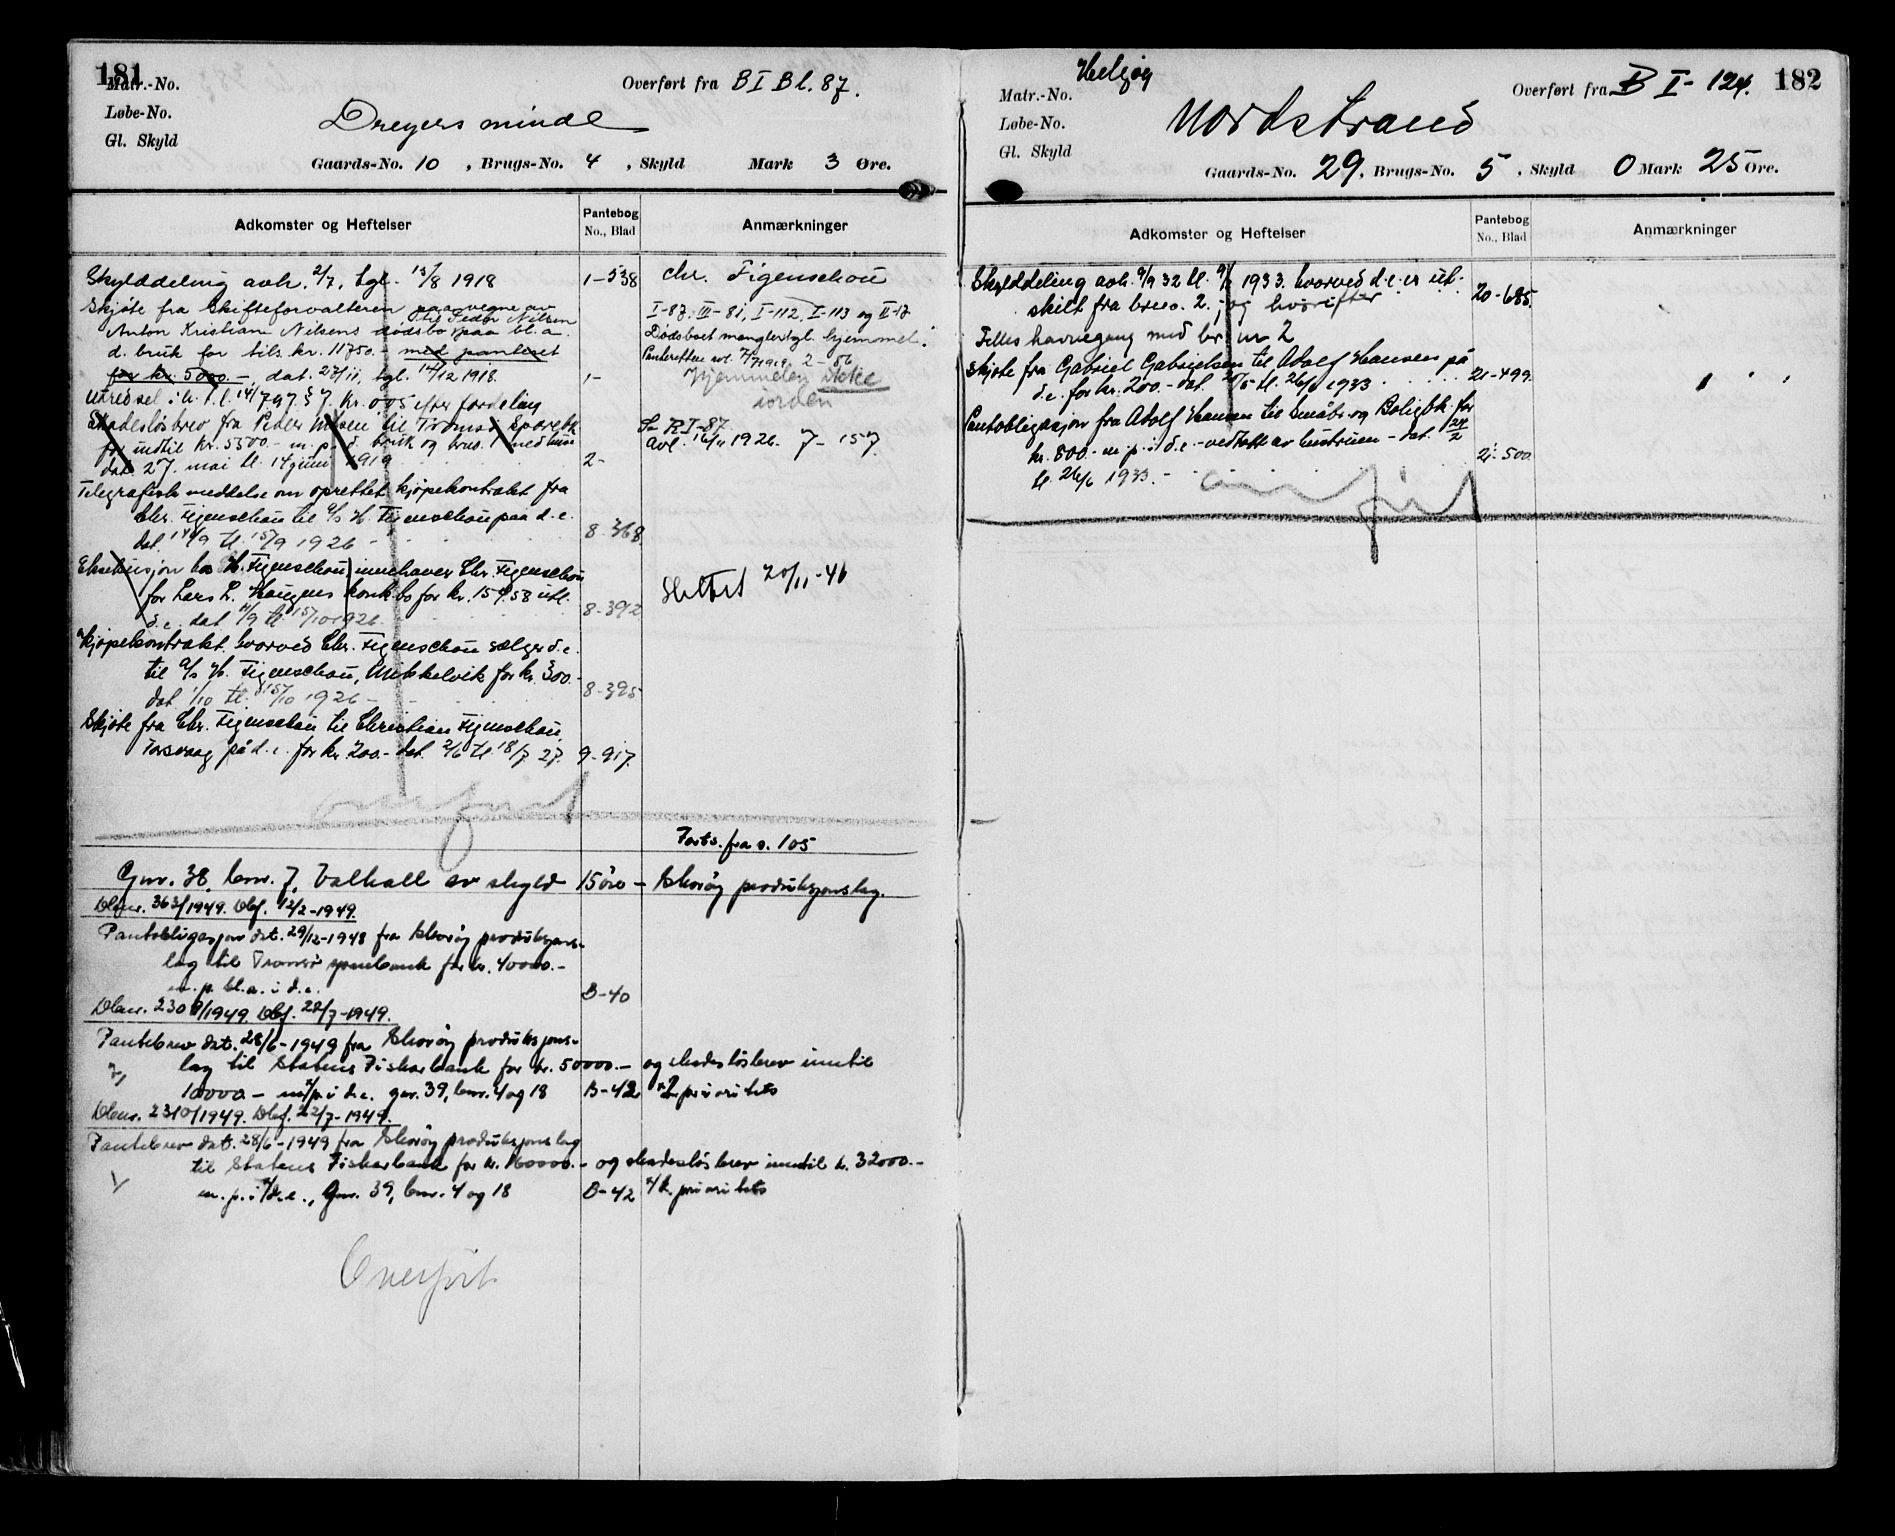 181
Matr.-No.
Løbe-No.
Gl. Skyld
Overført fra B I Bl. 87.
Dreyers minde
Gaards-No. 10, Brugs-No. 4, Skyld Mark 3 Øre.
Adkomster og Heftelser
Pantebog
No., Blad
Anmærkninger
Skylddeling avh. 2/7, tgl. 13/8 1918 1-538 Chr. Figenschou
Skjøte fra Skifteforvalteren paa vegne av
Anton Kristian Nilsens dødsbo til Peder Nilsen paa bl. a.
d. bruk for tils. kr. 11750.- med panteret
for kr. 5000.-, dat. 27/11, tgl. 14/12 1918. 1-
I-87. III-81, I-112, I-113 og II-17
Dødsboet mangler tgl. hjemmel.
2-56
Hjemmelen ikke
iorden
Utredsel i h. t. l. 14/7 97. § 7. kr. 0.05 efter fordeling
Skadesløsbrev fra Peder Nilsen til Tromsø
for indtil kr. 5500.- m. p. i d. bruk og brno. 1 med hus
dat. 27. mai tl. 14 juni 1919 2-
Se B I-87.
Avl. 16/11 1926. 7-157
Telegrafisk meddelse om oprettet kjøpekontrakt fra
Chr. Figenschou til A/s H. Figenschou paa d. e.
dat. 14/9 tl. 15/9 1926 - 8-368
Eksekusjon hos H. Figenschou, innehaver Chr. Figenschou
for Lars L. Haugens konk.bo for kr. 159.58 utl.
d. e. dat. 11/9 tl. 15/10 1926. 8-392
Slettet 20/11-46
Kjøpekontrakt hvorved Chr. Figenschou sælger d. e.
til A/s H. Figenschou, Mikkelvik for kr. 300.-
dat. 1/10 tl. 15/10 1926 - 8-395
Skjøte fra Chr. Figenschou til Christian Figenschou,
Torsvaag på d. e. for kr. 200.- dat. 2/6 tl. 18/7 27. 9-917.
overført
Forts. fra s. 105
Gnr. 38, bnr. 7, Valhall av skyld 15 øre - Skorøy produksjonslag.
Dbnr. 363/1949. Dbf. 12/2-1949.
Pantobligasjon dat. 29/12-1948 fra Skorøy produksjons-
lag til Tromsø sparebank for kr. 40000.-
m. p. bl. a. i d. e. B-40
Dbnr. 2309/1949. Dbf. 22/7-1949.
Pantebrev dat. 28/6-1949 fra Skorøy produksjons-
lag til Statens Fiskarbank for kr. 50000.- og skadesløsbrev inntil
10000.- m/p. i d. e. gnr. 39, bnr. 4 og 18 B-42 prioritets
Dbnr. 2310/1949. Dbf. 22/7-1949.
Pantebrev dat. 28/6-1949 fra Skorøy produksjonslag
til Statens Fiskarbank for kr. 160000.- og skadesløsbrev inntil k. 32000.-
m. p. i d. e., Gnr. 39, bnr. 4 og 18 B-42 prioritets
Overført
182
Helgøy
Matr.-No.
Løbe-No.
Gl. Skyld
Overført fra B I- 124.
Nordstrand
Gaards-No. 29, Brugs-No. 5, Skyld 0 Mark 25 Øre.
Adkomster og Heftelser
Pantebog
No., Blad
Anmærkninger
Skylddeling avh. 9/9 32 tl. 1933. hvorved d. e. er ut-
skilt fra brno. 2, og hvorefter 20-685.
Felles havnegang med br nr 2
Skjøte fra Gabriel Gabrielsen til Adolf Hansen på
d. e. for kr. 200.- dat. tl. 26/6 1933 21-499.
Pantobligasjon fra Adolf Hansen til Småbr. og Boligbk. for
kr. 800.- m. p. i d. e. - vedtatt av hustruen - dat. 24/2
tl. 26/6 1933. - 21-500
overført